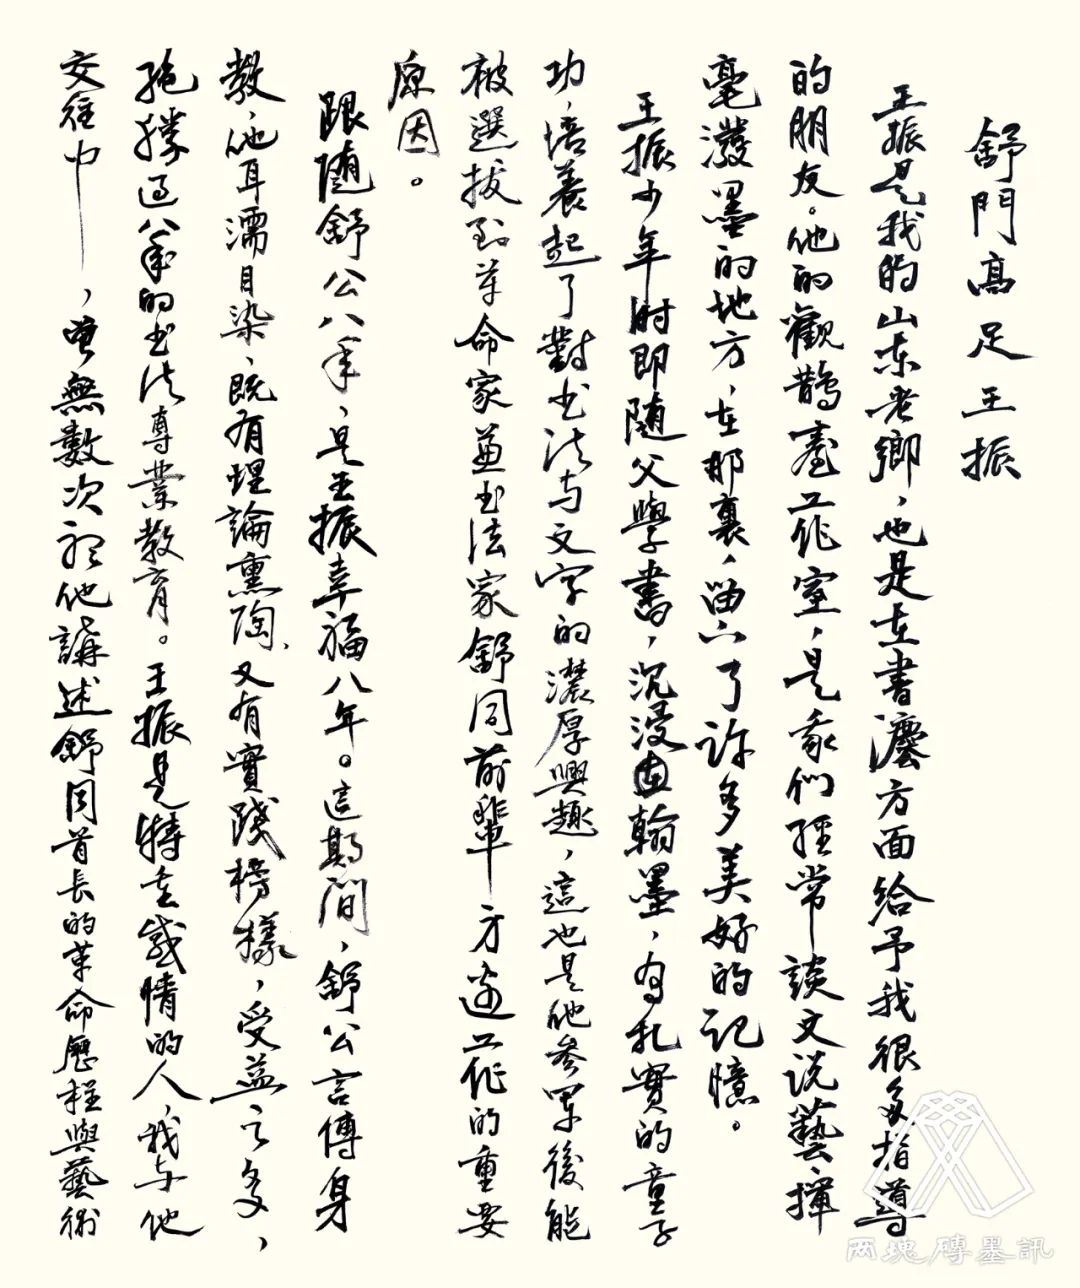 舒門高足王振
王振是我的山东老鄉，也是在書灋方面給予我很多指導
的朋友。他的觀鵲臺工作室，是我們經常談文説藝揮
毫潑墨的地方，在那裏，留下了許多美好的記憶。
王振少年时即随父學書，沉浸在翰墨，有扎實的童子
功，培養起了對书法与文字的濃厚興趣，這也是他参军後能
被選拔到革命家兼书法家舒同前輩身边工作的重要
原因。
跟随舒公八年，是王振幸福八年。這期間，舒公言傳身
教，他耳濡目染，既有理論熏陶、又有實踐榜樣，受益之多，
绝勝过八年的书法專業教育。王振是特重感情的人，我与他
交往中，曾無數次听他講述舒同首長的革命歷程與藝術
两塊磚墨訊